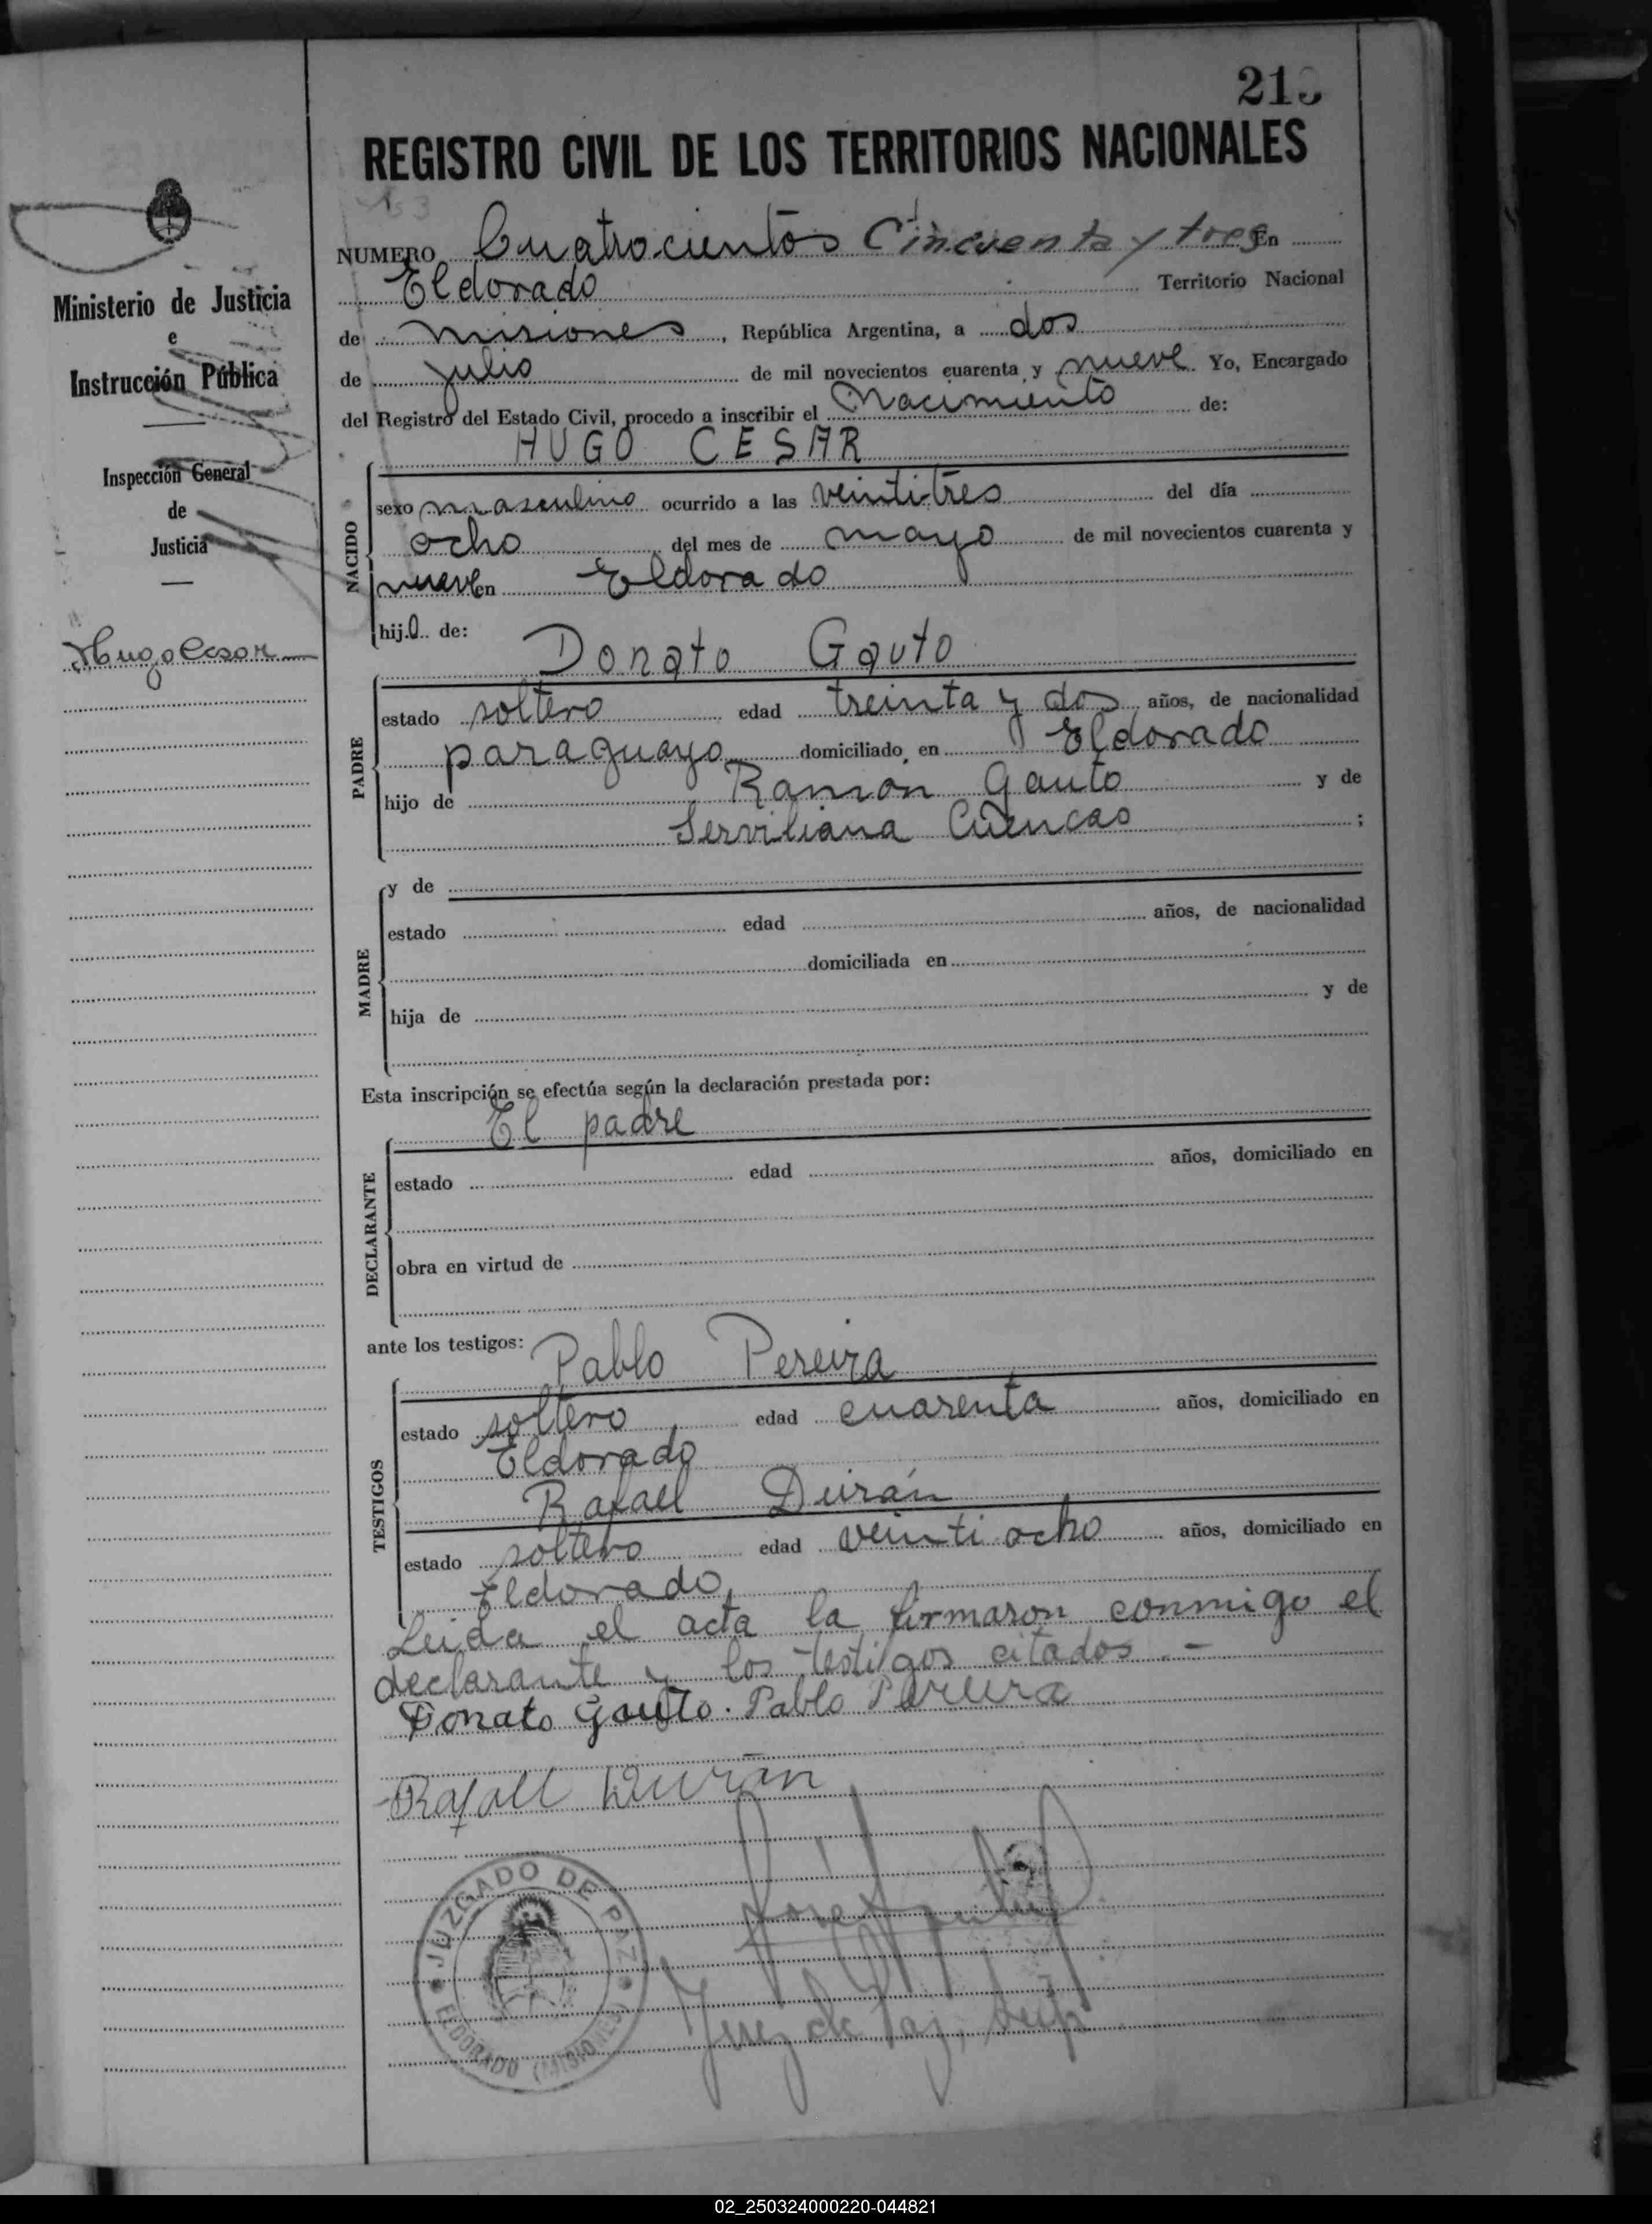 REGISTRO CIVIL DE LOS TERRITORIOS NACIONALES
NUMERO Cuatrocientos Cincuenta y tres En
Eldorado Territorio Nacional
de misiones, República Argentina, a dos
de julio de mil novecientos cuarenta y nueve Yo, Encargado
del Registro del Estado Civil, procedo a inscribir el Nacimiento de:
HUGO CESAR
NACIDO
sexo masculino ocurrido a las veintitres del día
ocho del mes de mayo de mil novecientos cuarenta y
nueve en Eldorado
hijo de:
Donato Gauto
PADRE
estado soltero edad treinta y dos años, de nacionalidad
paraguayo domiciliado en Eldorado
hijo de Ramón Gauto y de
Serviliana Cuencas ;
MADRE
y de
estado edad años, de nacionalidad
domiciliada en
hija de y de
Esta inscripción se efectúa según la declaración prestada por:
El padre
DECLARANTE
estado edad años, domiciliado en
obra en virtud de
ante los testigos:
Pablo Pereira
TESTIGOS
estado soltero edad cuarenta años, domiciliado en
Eldorado
Rafael Durán
estado soltero edad veintiocho años, domiciliado en
Eldorado,
Leida el acta la firmaron conmigo el
declarante y los testigos citados.-
Donato Gauto. Pablo Pereira
Rafael Duran
Juez de Paz
JUZGADO DE PAZ
ELDORADO (MISIONES)
Ministerio de Justicia
e
Instrucción Pública
Inspección General
de
Justicia
Hugo Cesar
02_250324000220-044821